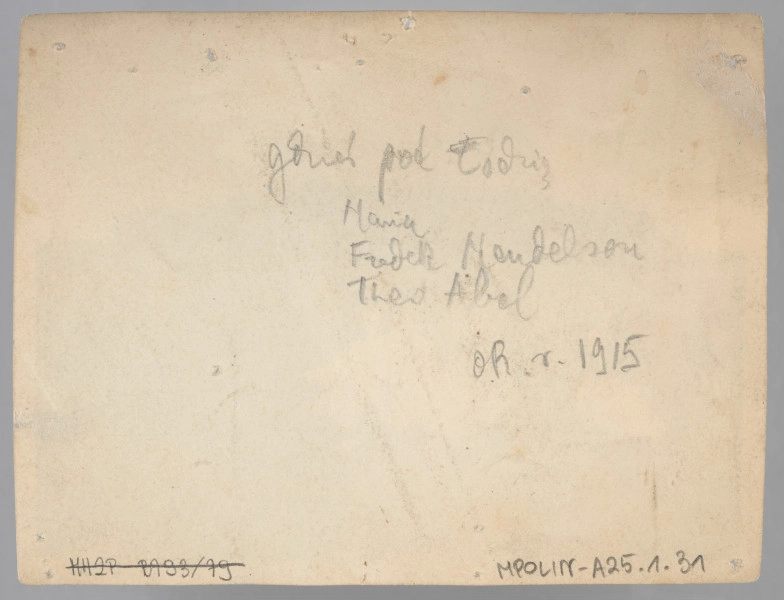 gdzieś pod Łodzią
Maria
Fredek Mendelson
Theo Abel
ok. r. 1915
MPOLIN-A25.1.31